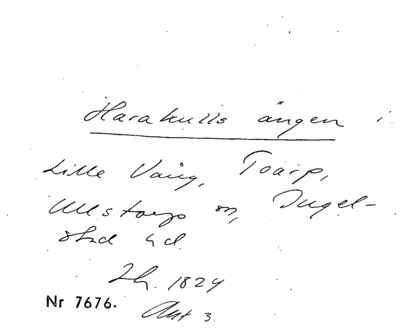 Harakulls ängen i
Lille Vång, Toarp,
Ullstorps sn, Ingel-
stad hd
Lh. 1824
Nr 7676. Akt 3.